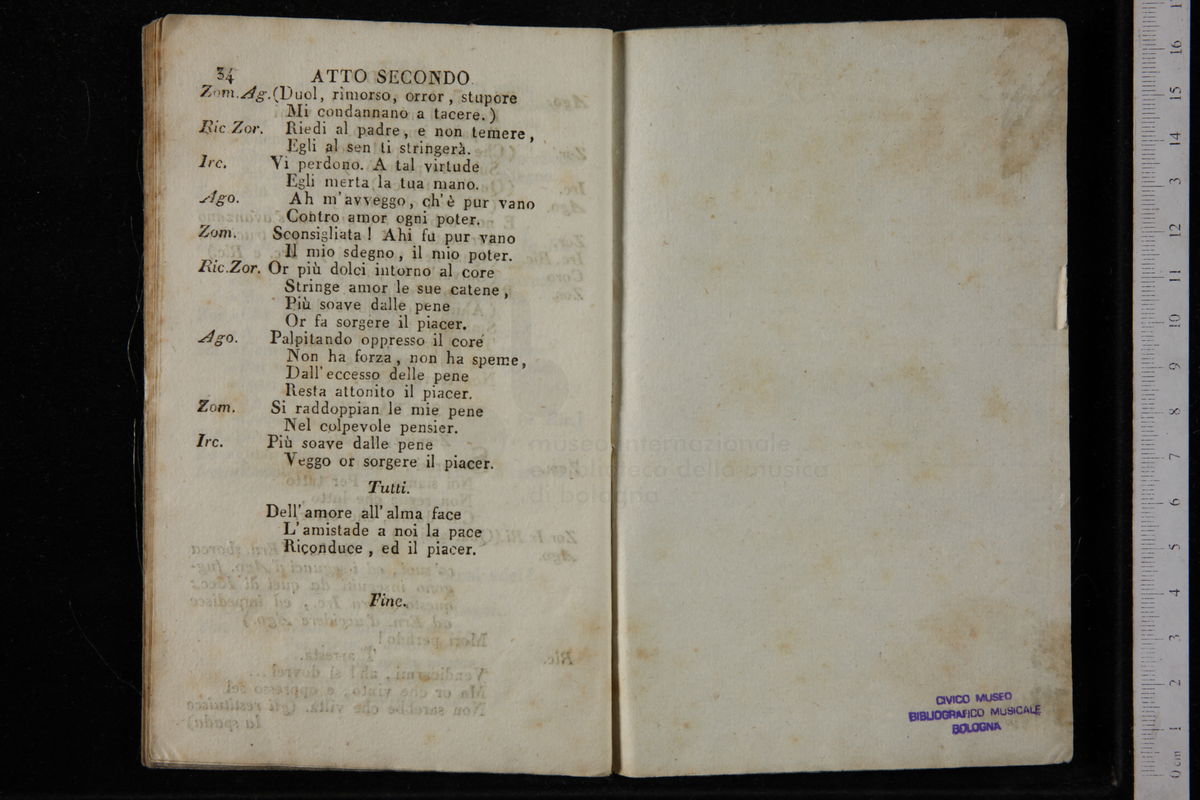 34 ATTO SECONDO
Zom. Ag. (Duol, rimorso, orror, stupore
Mi condannano a tacere.)
Ric Zor. Riedi al padre, e non temere,
Egli al sen ti stringerà.
Irc. Vi perdono. A tal virtude
Egli merta la tua mano.
Ago. Ah m'avveggo, ch'è pur vano
Contro amor ogni poter.
Zom. Sconsigliata! Ahi fu pur vano
Il mio sdegno, il mio poter.
Ric. Zor. Or più dolci intorno al core
Stringe amor le sue catene,
Più soave dalle pene
Or fa sorgere il piacer.
Ago. Palpitando oppresso il core
Non ha forza, non ha speme,
Dall'eccesso delle pene
Resta attonito il piacer.
Zom. Si raddoppian le mie pene
Nel colpevole pensier.
Irc. Più soave dalle pene
Veggo or sorgere il piacer.
Tutti.
Dell'amore all'alma face
L'amistade a noi la pace
Riconduce, ed il piacer.
Fine.
museo internazionale
e biblioteca della musica
di bologna
CIVICO MUSEO
BIBLIOGRAFICO MUSICALE
BOLOGNA
0 cm 1 2 3 4 5 6 7 8 9 10 11 12 13 14 15 16 17